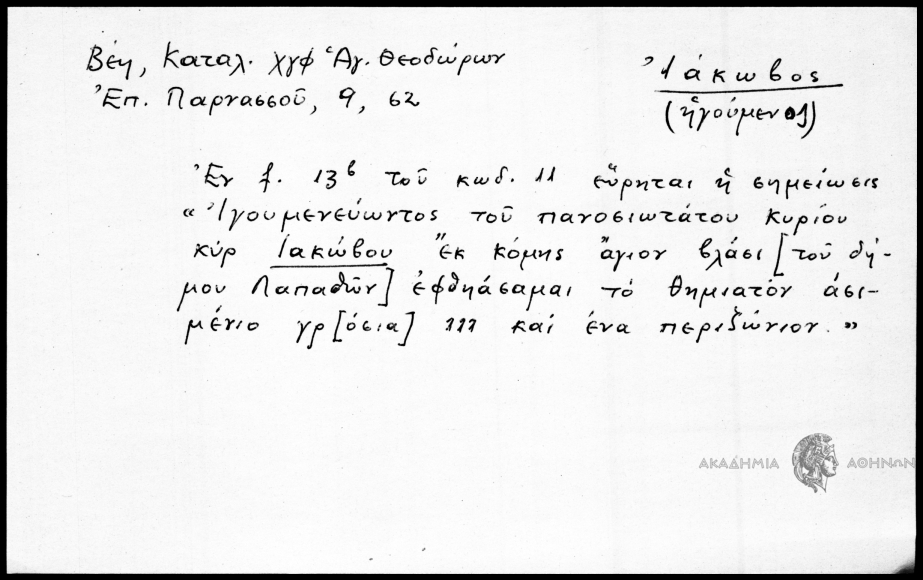 Βέη, Καταλ. χγφ Ἁγ. Θεοδώρων
Ἐπ. Παρνασσοῦ, 9, 62
Ἰάκωβος
(ἡγούμενος)
Ἐν f. 13β τοῦ κωδ. 11 εὕρηται ἡ σημείωσις
« Ἰγουμενεύωντος τοῦ πανοσιωτάτου κυρίου
κύρ Ἰακώβου ἐκ κόμης ἅγιον βλάσι [τοῦ δή-
μου Λαπαθῶν] ἐφθηάσαμαι τὸ θημιατὸν ἀσι-
μένιο γρ[όσια] 111 καί ἕνα περιζώνιον. »
ΑΚΑΔΗΜΙΑ ΑΘΗΝΩΝ